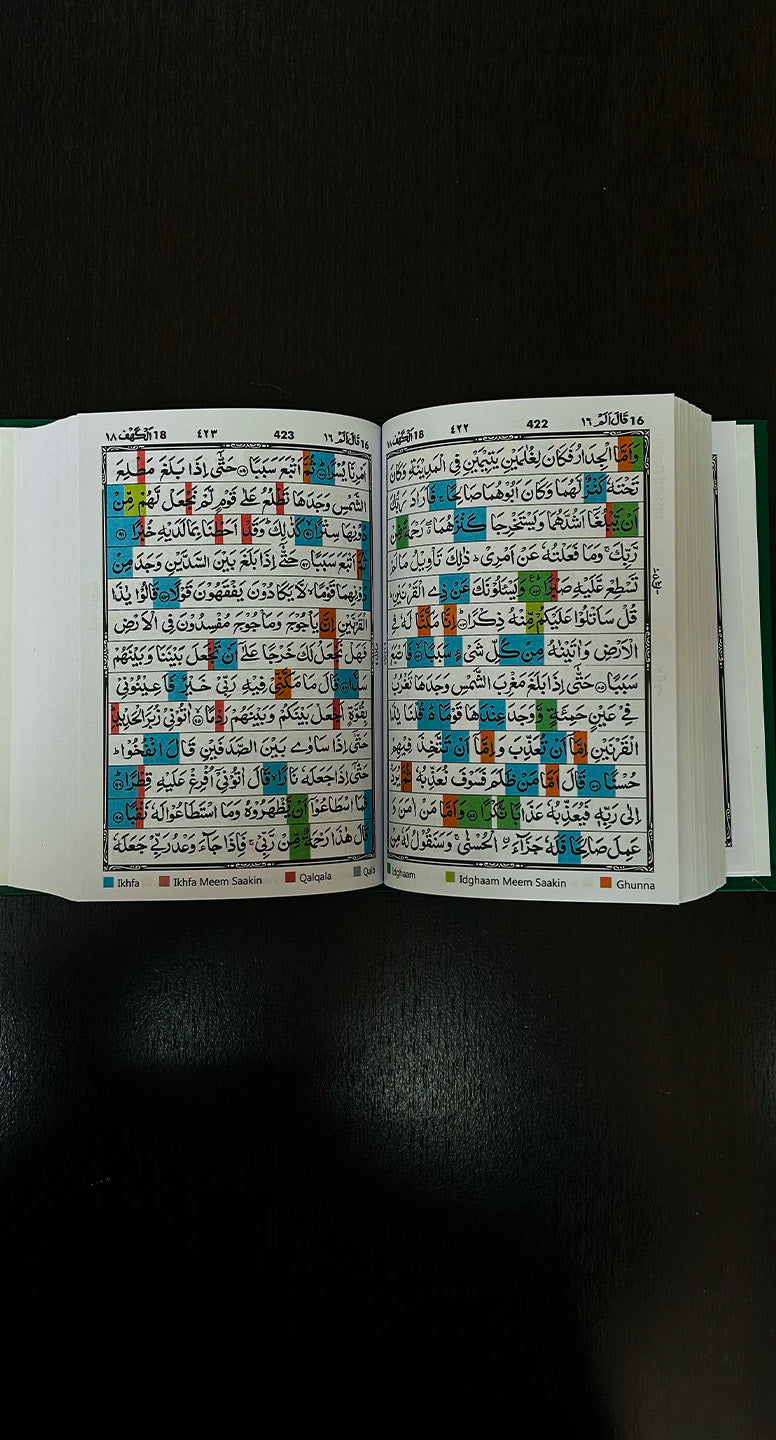 16 قَالَ اَلَمْ ١٦ 422 ٤٢٢ 18 اَلْكَهْف ١٨
وَاَمَّا الْجِدَارُ فَكَانَ لِغُلٰمَيْنِ يَتِيْمَيْنِ فِى الْمَدِيْنَةِ وَكَانَ
تَحْتَهٗ كَنْزٌ لَّهُمَا وَكَانَ اَبُوْهُمَا صَالِحًا ۚ فَاَرَادَ رَبُّكَ
اَنْ يَّبْلُغَاۤ اَشُدَّهُمَا وَيَسْتَخْرِجَا كَنْزَهُمَا ۖۗ رَحْمَةً مِّنْ
رَّبِّكَ ۚ وَمَا فَعَلْتُهٗ عَنْ اَمْرِىْ ؕ ذٰلِكَ تَاْوِيْلُ مَا لَمْ
تَسْطِعْ عَّلَيْهِ صَبْرًا ؕ ۸۲ وَيَسْـَٔلُوْنَكَ عَنْ ذِى الْقَرْنَيْنِ ؕ
قُلْ سَاَتْلُوْا عَلَيْكُمْ مِّنْهُ ذِكْرًا ؕ ۸۳ اِنَّا مَكَّنَّا لَهٗ فِى
الْاَرْضِ وَاٰتَيْنٰهُ مِنْ كُلِّ شَىْءٍ سَبَبًا ۙ ۸۴ فَاَتْبَعَ
سَبَبًا ۸۵ حَتّٰٓى اِذَا بَلَغَ مَغْرِبَ الشَّمْسِ وَجَدَهَا تَغْرُبُ
فِىْ عَيْنٍ حَمِئَةٍ وَّوَجَدَ عِنْدَهَا قَوْمًا ؕ قُلْنَا يٰذَا
الْقَرْنَيْنِ اِمَّاۤ اَنْ تُعَذِّبَ وَاِمَّاۤ اَنْ تَتَّخِذَ فِيْهِمْ
حُسْنًا ۸۶ قَالَ اَمَّا مَنْ ظَلَمَ فَسَوْفَ نُعَذِّبُهٗ ثُمَّ يُرَدُّ
اِلٰى رَبِّهٖ فَيُعَذِّبُهٗ عَذَابًا نُّكْرًا ۸۷ وَاَمَّا مَنْ اٰمَنَ وَ
عَمِلَ صَالِحًا فَلَهٗ جَزَآءَ ۨ الْحُسْنٰى ۚ وَسَنَقُوْلُ لَهٗ مِنْ
Idghaam Idghaam Meem Saakin Ghunna
16 قَالَ اَلَمْ ١٦ 423 ٤٢٣ 18 اَلْكَهْف ١٨
اَمْرِنَا يُسْرًا ؕ ۸۸ ثُمَّ اَتْبَعَ سَبَبًا ۸۹ حَتّٰٓى اِذَا بَلَغَ مَطْلِعَ
الشَّمْسِ وَجَدَهَا تَطْلُعُ عَلٰى قَوْمٍ لَّمْ نَجْعَلْ لَّهُمْ مِّنْ
دُوْنِهَا سِتْرًا ۙ ۹۰ كَذٰلِكَ ؕ وَقَدْ اَحَطْنَا بِمَا لَدَيْهِ خُبْرًا ۹۱
ثُمَّ اَتْبَعَ سَبَبًا ۹۲ حَتّٰٓى اِذَا بَلَغَ بَيْنَ السَّدَّيْنِ وَجَدَ مِنْ
دُوْنِهِمَا قَوْمًا ۙ لَّا يَكَادُوْنَ يَفْقَهُوْنَ قَوْلًا ۹۳ قَالُوْا يٰذَا
الْقَرْنَيْنِ اِنَّ يَاْجُوْجَ وَمَاْجُوْجَ مُفْسِدُوْنَ فِى الْاَرْضِ
فَهَلْ نَجْعَلُ لَكَ خَرْجًا عَلٰٓى اَنْ تَجْعَلَ بَيْنَنَا وَبَيْنَهُمْ
سَدًّا ۹۴ قَالَ مَا مَكَّنِّىْ فِيْهِ رَبِّىْ خَيْرٌ فَاَعِيْنُوْنِىْ
بِقُوَّةٍ اَجْعَلْ بَيْنَكُمْ وَبَيْنَهُمْ رَدْمًا ۙ ۹۵ اٰتُوْنِىْ زُبَرَ الْحَدِيْدِ ؕ
حَتّٰٓى اِذَا سَاوٰى بَيْنَ الصَّدَفَيْنِ قَالَ انْفُخُوْا ؕ
حَتّٰٓى اِذَا جَعَلَهٗ نَارًا ۙ قَالَ اٰتُوْنِىْۤ اُفْرِغْ عَلَيْهِ قِطْرًا ؕ ۹۶
فَمَا اسْطَاعُوْۤا اَنْ يَّظْهَرُوْهُ وَمَا اسْتَطَاعُوْا لَهٗ نَقْبًا ۹۷
قَالَ هٰذَا رَحْمَةٌ مِّنْ رَّبِّىْ ۚ فَاِذَا جَآءَ وَعْدُ رَبِّىْ جَعَلَهٗ
Ikhfa Ikhfa Meem Saakin Qalqala